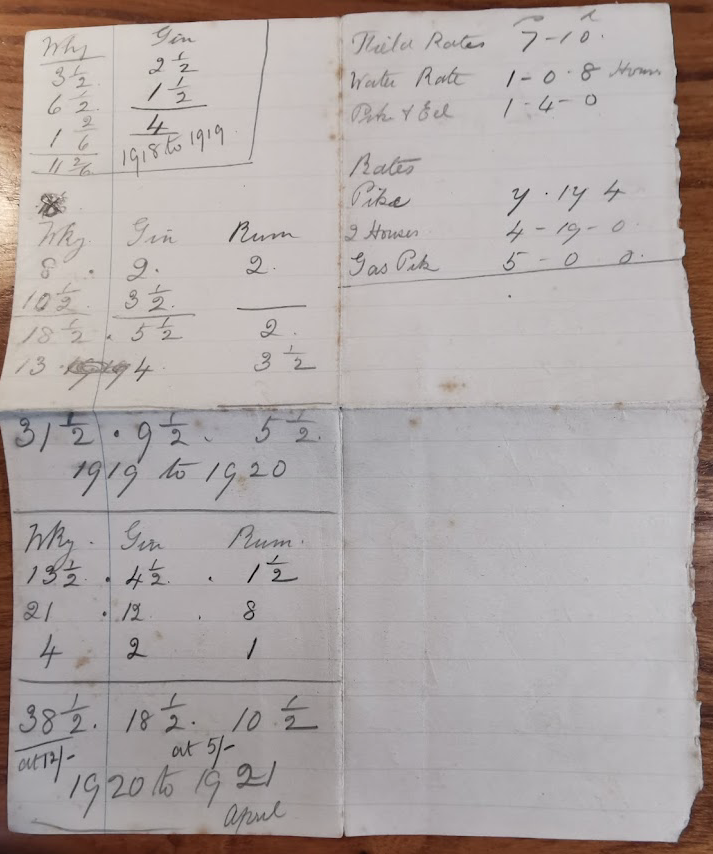 Wky Gin
3 1/2 2 1/2
6 1/2 1 1/2
1 2/6 4
11 2/6 1918 to 1919
Wky Gin Rum
8 . 2. 2.
10 1/2 3 1/2.
18 1/2 . 5 1/2 2.
13 . 4 3 1/2
31 1/2 . 9 1/2 . 5 1/2.
1919 to 1920
Wky . Gin Rum.
13 1/2 . 4 1/2 . . 1 1/2
21 . 12 . 8
4 2 1
38 1/2 . 18 1/2 . 10 1/2
at 12/- at 5/-
1920 to 1921
April
s d
Field Rates 7-10.
Water Rate 1-0.8 House
1-4-0
Rates
Pike 7.17 4
2 Houses 4-19-0
Gas 5-0 0.